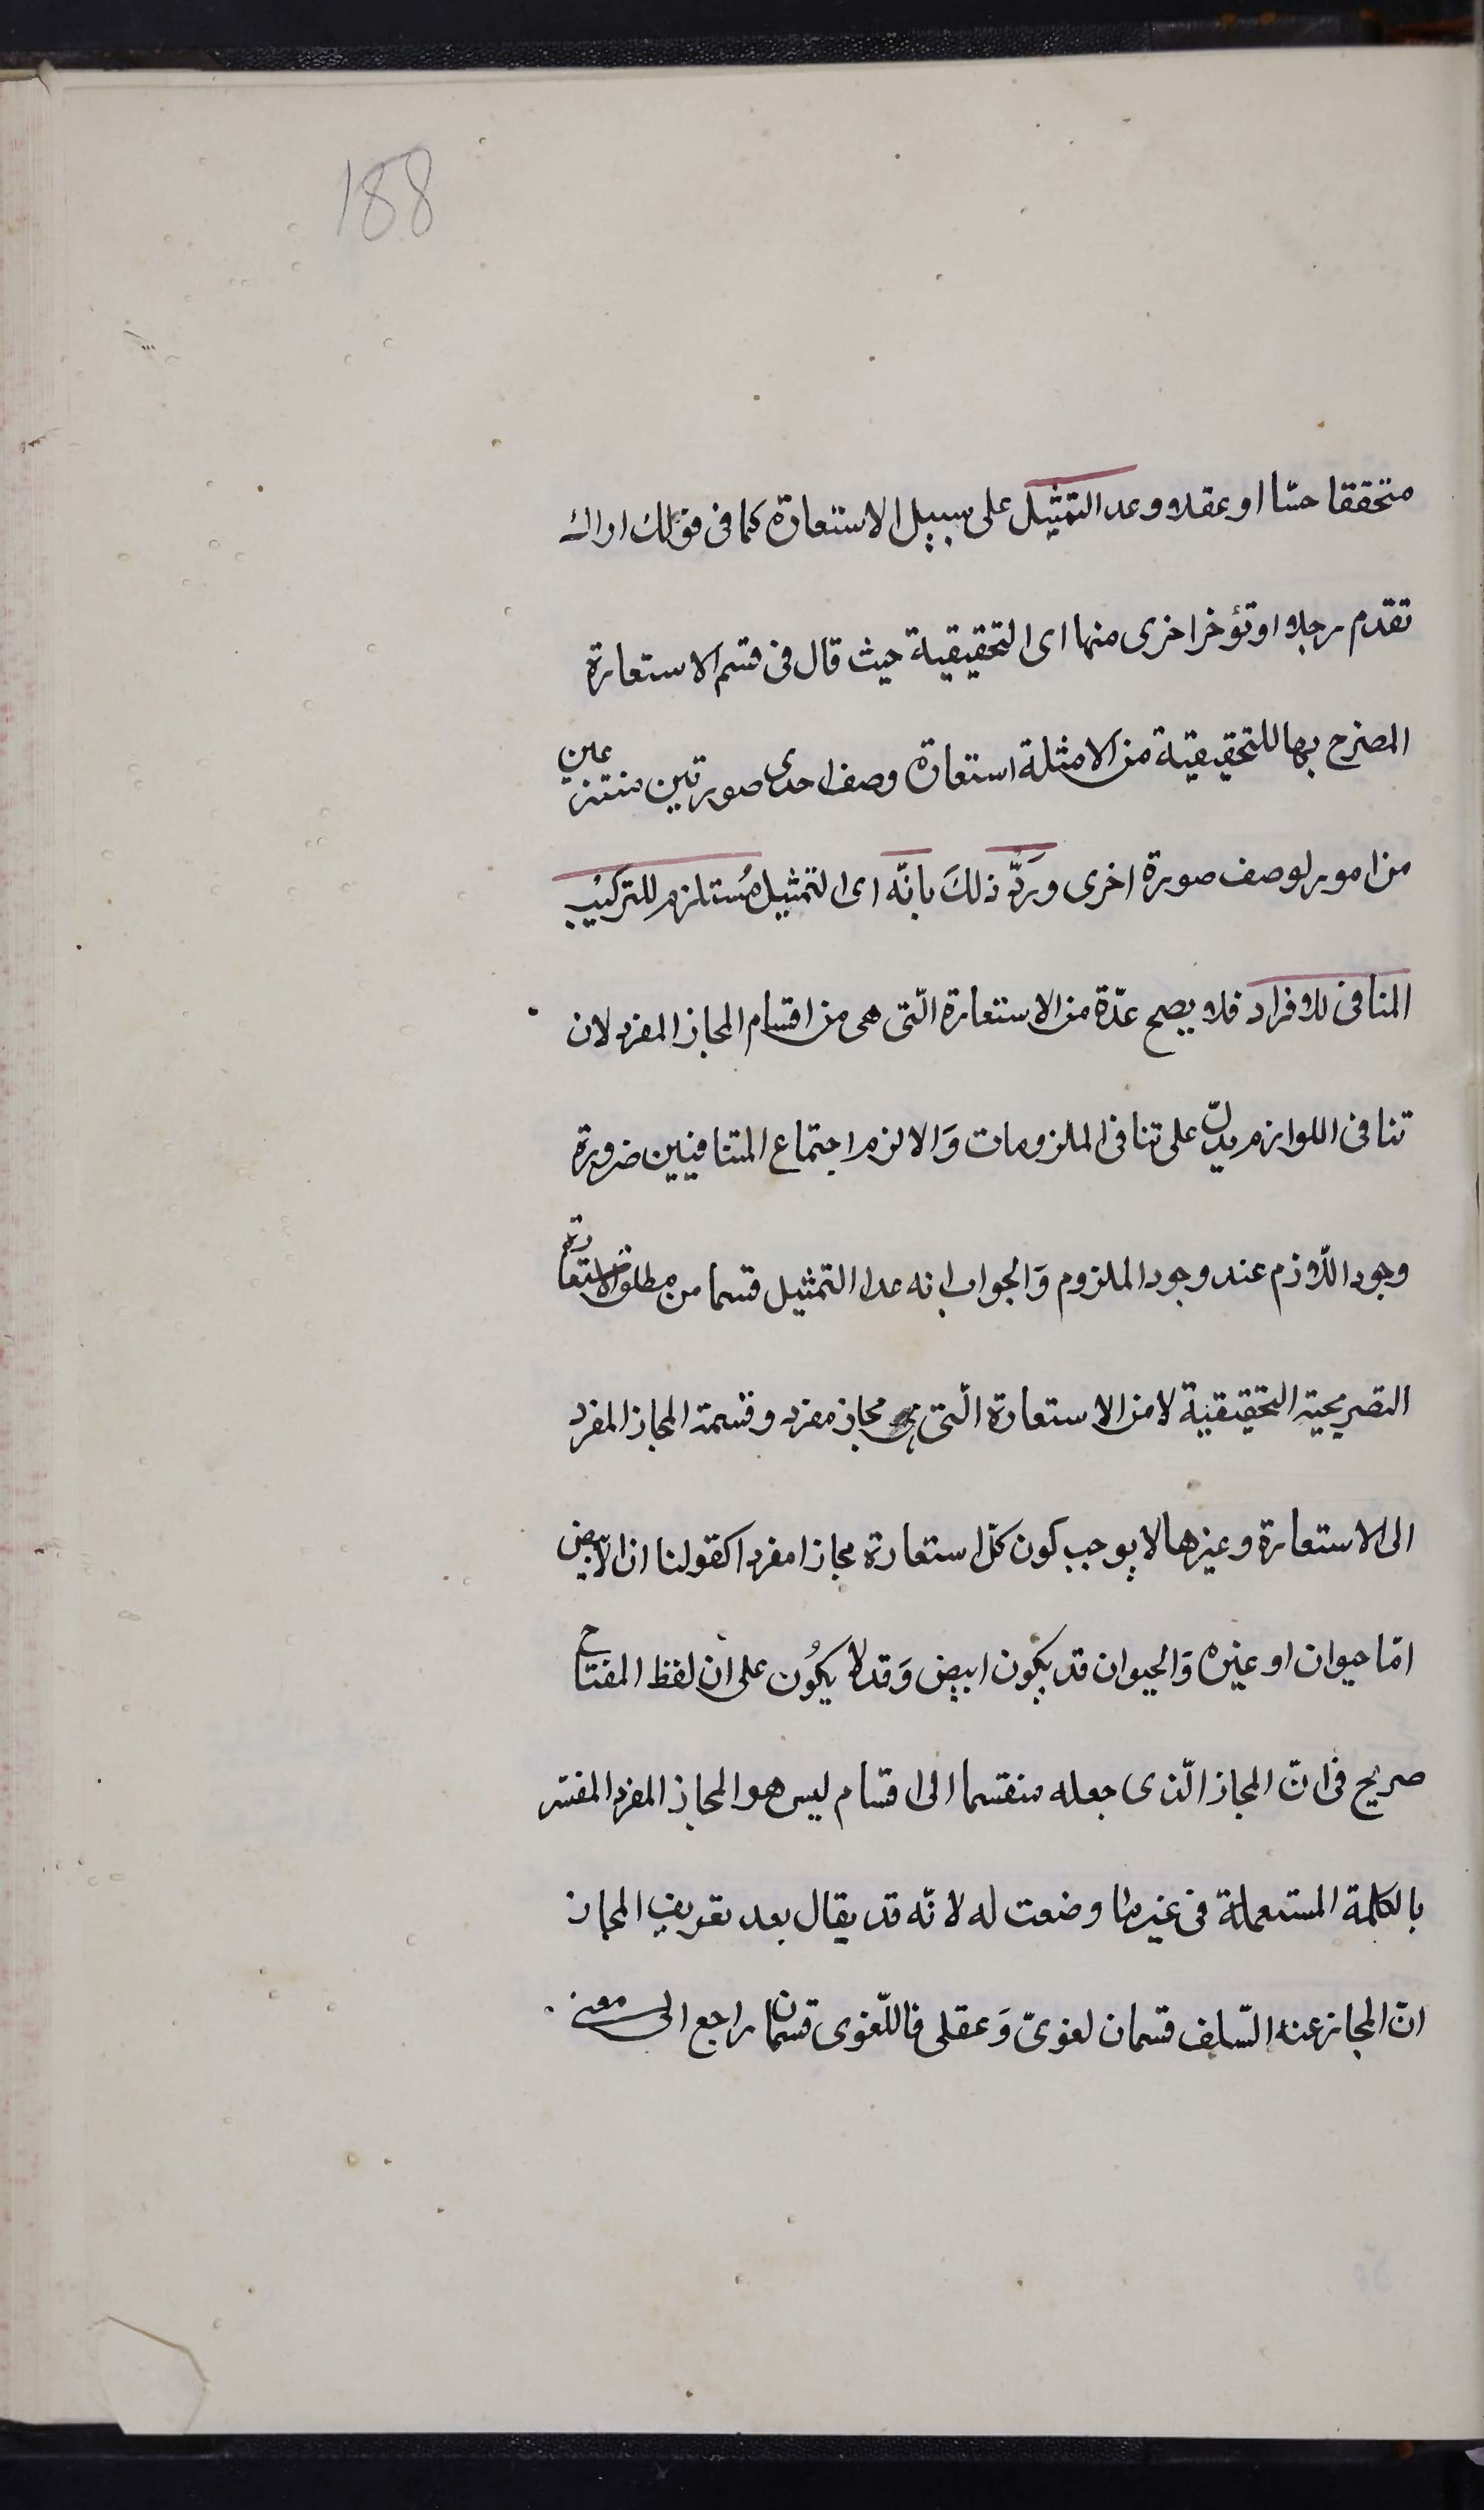 188
متحققا حسّا او عقلا وعد التمثيل على سبيل الاستعارة كما فى قولك اراك
تقدم رجلا او تؤخر اخرى منها اى التحقيقية حيث قال فى قسم الاستعارة
المصرح بها للتحقيقية من الامثلة استعارة وصف احدى صورتين منتزعين
من امور لوصف صورة اخرى وَرُدَّ ذلكَ بانّه اى التمثيل مُستلزم للتركيب
المنافى للافراد فلا يصح عدّة من الاستعارة الّتى هى من اقسام المجاز المفرد لان
تنافى اللوازم يدلّ على تنافى الملزومات وَالا لزم اجتماع المتنافيين ضرورة
وجود اللّازم عند وجود الملزوم وَالجواب انه عدا التمثيل قسما من مطلق الاستعارة
التصريحية التحقيقية لا من الاستعارة الّتى هى مجاز مفرد وقسمة المجاز المفرد
الى الاستعارة وغيرها لا يوجب كون كلّ استعارة مجازا مفردا كقولنا ان الابيض
امّا حيوان او غيره وَالحيوان قد يكون ابيض وَقد لا يكُون على ان لفظ المفتاح
صريح فى انّ المجاز الّذى جعله منقسما الى اقسام ليس هو المجاز المفرد المفسر
بالكلمة المستعملة فى غير ما وضعت له لانّه قد يقال بعد تعريف المجاز
انّ المجاز عند السّلف قسمان لغوىّ وَعقلى فاللّغوى قسمان راجع الى معنى